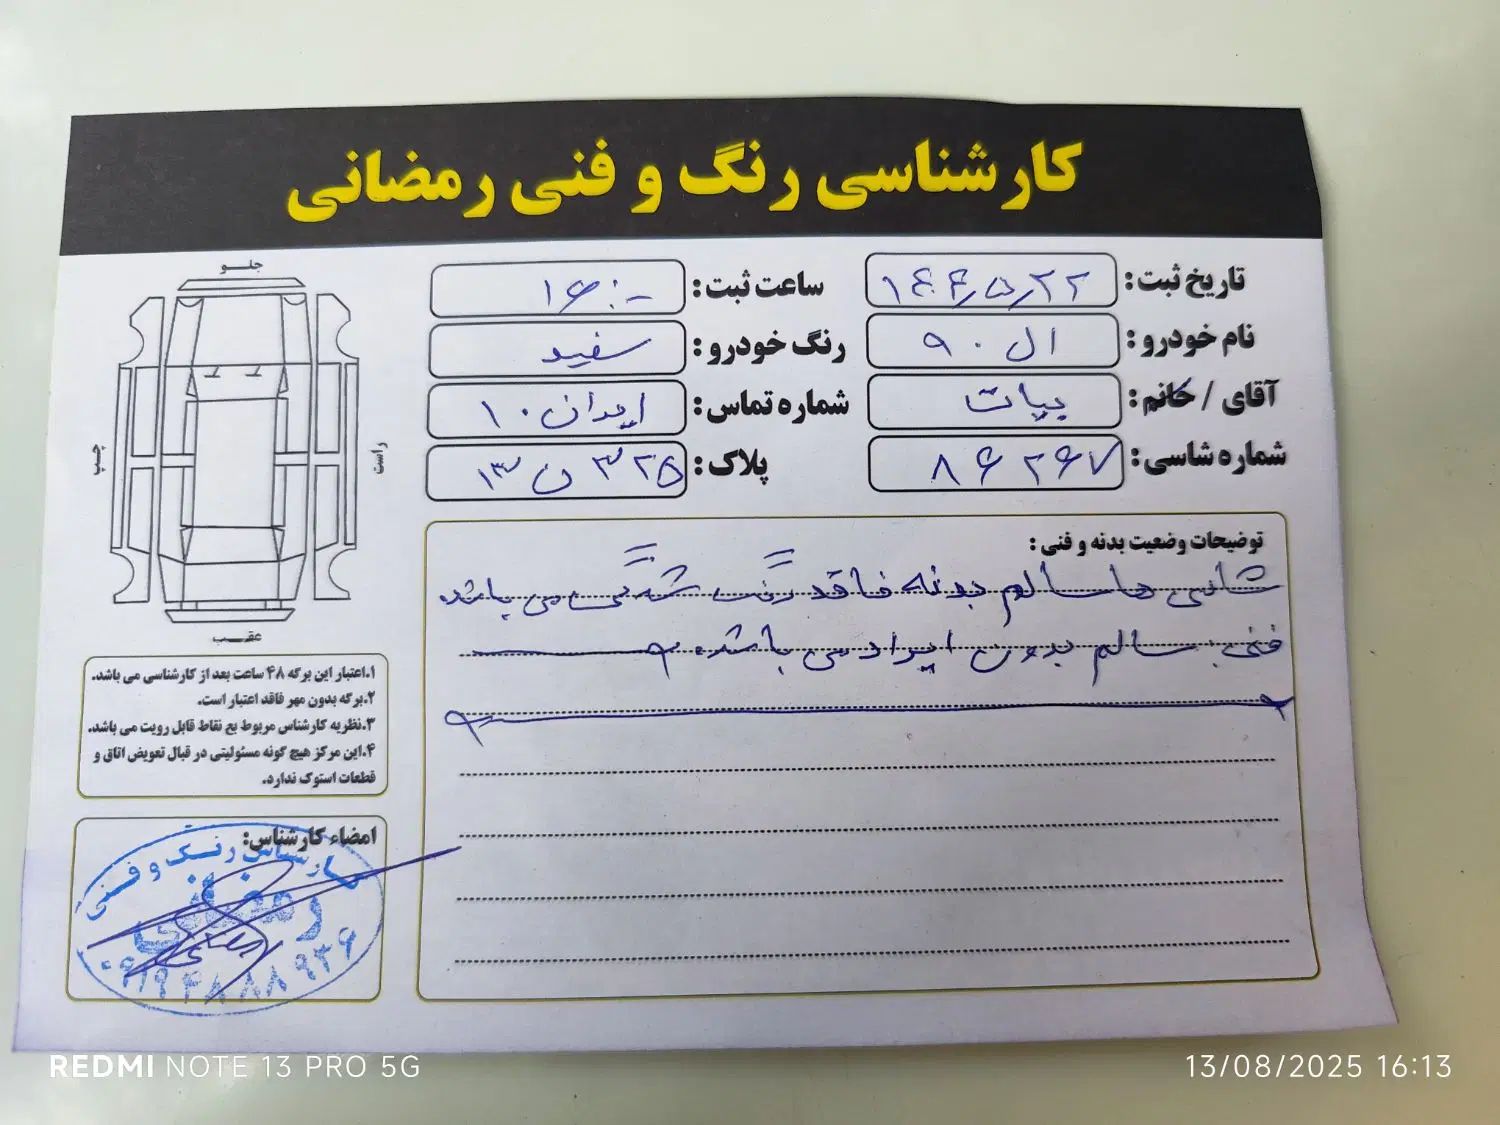 کارشناسی رنگ و فنی رمضانی
تاریخ ثبت: ۱۴۰۴/۵/۲۲
ساعت ثبت: ۱۶:۰۰
نام خودرو: ال ۹۰
رنگ خودرو: سفید
آقای / خانم: بیات
شماره تماس: ایران ۱۰
شماره شاسی: ۸۶۲۶۷
پلاک: ۱۳ ن ۳۲۵
جلــو
چپ
راست
عقــب
توضیحات وضعیت بدنه و فنی:
شاسی ها سالم بدنه فاقد رنگ شدگی می باشد
فنی سالم بدون ایراد می باشد
۱.اعتبار این برگه ۴۸ ساعت بعد از کارشناسی می باشد.
۲.برگه بدون مهر فاقد اعتبار است.
۳.نظریه کارشناس مربوط بع نقاط قابل رویت می باشد.
۴.این مرکز هیچ گونه مسئولیتی در قبال تعویض اتاق و
قطعات استوک ندارد.
امضاء کارشناس:
کارشناسی رنگ و فنی
رمضانی
۰۹۱۹۴۸۸۸۹۳۶
REDMI NOTE 13 PRO 5G
13/08/2025 16:13